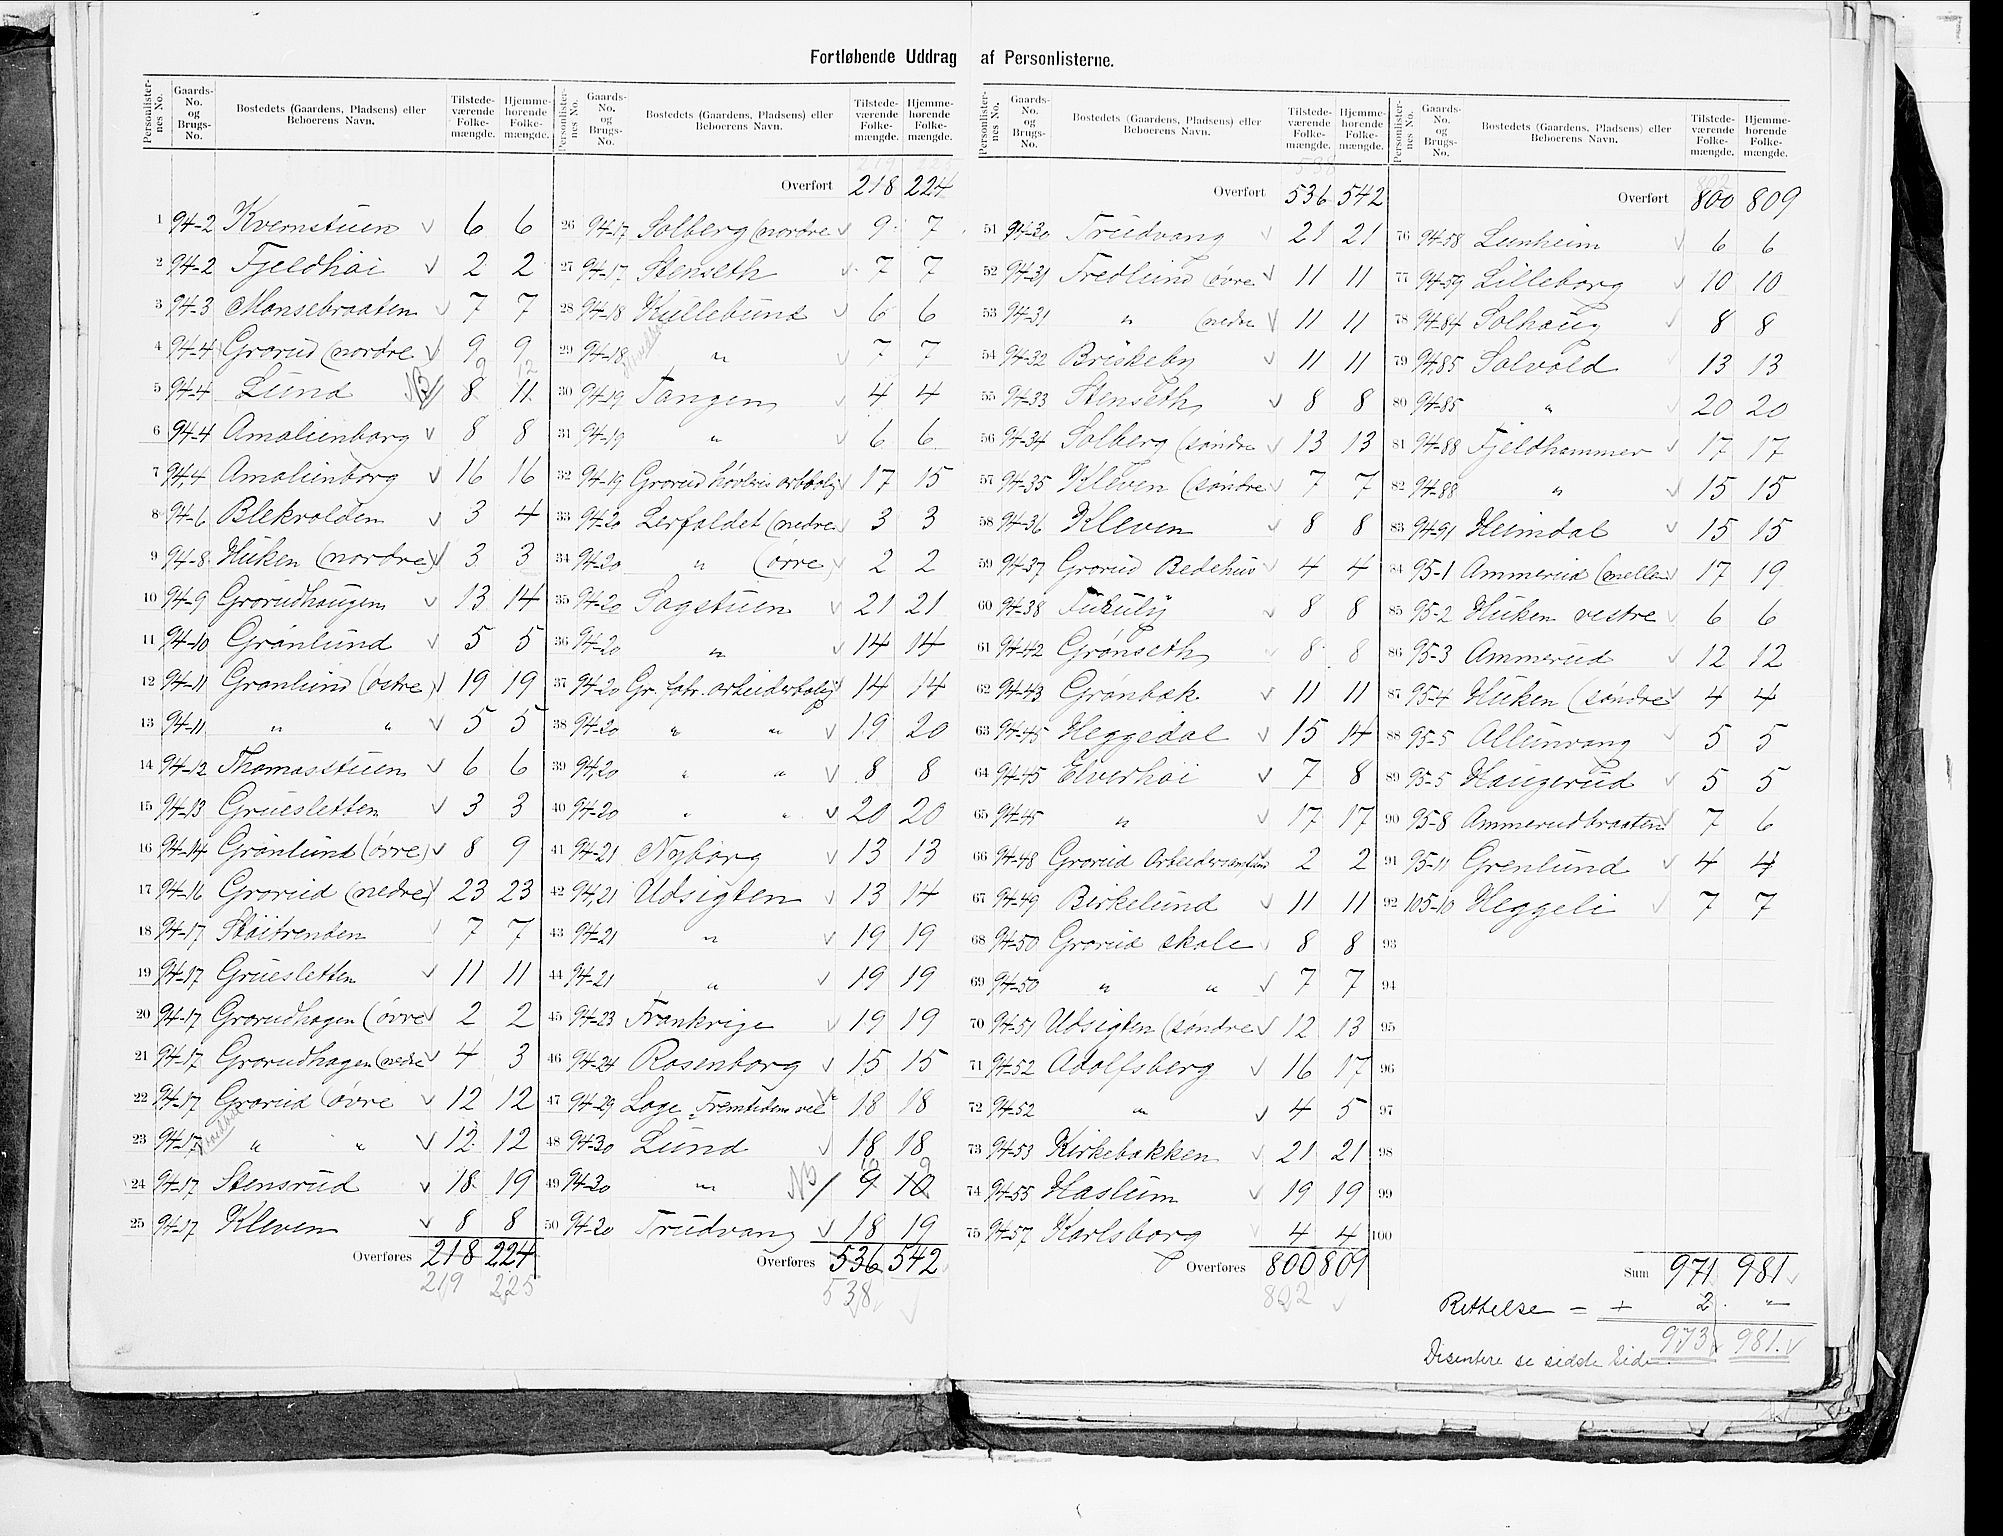 Fortløbende Uddrag af Personlisterne.
Personlister-nes No. Gaards-No. og Brugs-No. Bostedets (Gaardens, Pladsens) eller Beboerens Navn. Tilstede-værende Folke-mængde. Hjemme-hørende Folke-mængde.
1 94-2 Kvernstuen v 6 6
2 94-2 Fjeldhöi v 2 2
3 94-3 Monsebraaten v 7 7
4 94-4 Grorud (nordre v 9 9
5 94-4 Lund NB 8 11
6 94-4 Amalienborg v 8 8
7 94-4 Amalienborg v 16 16
8 94-6 Blekvolden v 3 4
9 94-8 Huken (nordre) v 3 3
10 94-9 Grorudhaugen v 13 14
11 94-10 Grönlund v 5 5
12 94-11 Grønlund (østre) v 19 19
13 94-11 " " v 5 5
14 94-12 Thomasstuen v 6 6
15 94-13 Gruesletten v 3 3
16 94-14 Grønlund (øvre) v 8 9
17 94-16 Grorud (nedre) v 23 23
18 94-17 Støitrenden v 7 7
19 94-17 Gruesletten v 11 11
20 94-17 Grorudhagen (øvre v 2 2
21 94-17 Grorudhagen (nedre v 4 3
22 94-17 Grorud øvre v 12 12
23 94-17 " " v 12 12
24 94-17 Stensrud v 18 19
25 94-17 Kleven v 8 8
Overføres 218 224
219 225
Personlister-nes No. Gaards-No. og Brugs-No. Bostedets (Gaardens, Pladsens) eller Beboerens Navn. Tilstede-værende Folke-mængde. Hjemme-hørende Folke-mængde.
Overført 218 224
26 94-17 Solberg (nordre v 9 7
27 94-17 Stenseth v 7 7
28 94-18 Kullebund v 6 6
29 94-18 " v 7 7
30 94-19 Tangen v 4 4
31 94-19 " v 6 6
32 94-19 Grorud høvleri arbbolig v 17 15
33 94-20 Lerfaldet (nedre v 3 3
34 94-20 " (øvre) v 2 2
35 94-20 Sagstuen v 21 21
36 94-20 " v 14 14
37 94-20 Gr. fabr. arbeiderbolig v 14 14
38 94-20 " " v 19 20
39 94-20 " " v 8 8
40 94-20 " " v 20 20
41 94-21 Nyborg v 13 13
42 94-21 Udsigten v 13 14
43 94-21 " v 19 19
44 94-21 " v 19 19
45 94-23 Frankrige v 19 19
46 94-24 Rosenborg v 15 15
47 94-29 Loge "Fremtidens vel" v 18 18
48 94-30 Lund v 18 18
49 94-30 " NB / 9 10
50 94-20 Trudvang v 18 19
Overføres 536 542
538
Personlister-nes No. Gaards-No. og Brugs-No. Bostedets (Gaardens, Pladsens) eller Beboerens Navn. Tilstede-værende Folke-mængde. Hjemme-hørende Folke-mængde.
538
Overført 536 542
51 94-30 Trudvang v 21 21
52 94-31 Fredlund (øvre v 11 11
53 94-31 " (nedre v 11 11
54 94-32 Briskeby v 11 11
55 94-33 Stenseth v 8 8
56 94-34 Solberg (søndre v 13 13
57 94-35 Kleven (søndre v 7 7
58 94-36 Kleven v 8 8
59 94-37 Grorud Bedehus v 4 4
60 94-38 Furuly v 8 8
61 94-42 Grønseth v 8 8
62 94-43 Grönbæk v 11 11
63 94-45 Heggedal v 15 14
64 94-45 Elverhöi v 7 8
65 94-45 " v 17 17
66 94-48 Grorud Arbeidersamfund v 2 2
67 94-49 Birkelund v 11 11
68 94-50 Grorud skole v 8 8
69 94-50 " " v 7 7
70 94-51 Udsigten (søndre v 12 13
71 94-52 Adolfsberg v 16 17
72 94-52 " v 4 5
73 94-53 Kirkebakken v 21 21
74 94-55 Haslum v 19 19
75 94-57 Karlsborg v 4 4
Overføres 800 809
802
Personlister-nes No. Gaards-No. og Brugs-No. Bostedets (Gaardens, Pladsens) eller Beboerens Navn. Tilstede-værende Folke-mængde. Hjemme-hørende Folke-mængde.
802
Overført 800 809
76 94-58 Lunheim v 6 6
77 94-59 Lilleborg v 10 10
78 94-84 Solhaug v 8 8
79 94-85 Solvold v 13 13
80 94-85 " v 20 20
81 94-88 Fjeldhammer v 17 17
82 94-88 " v 15 15
83 94-91 Heimdal v 15 15
84 95-1 Ammerud (mellem 17 19
85 95-2 Huken vestre v 6 6
86 95-3 Ammerud v 12 12
87 95-4 Huken (søndre v 4 4
88 95-5 Alleunvang v 5 5
89 95-5 Haugerud v 5 5
90 95-8 Ammerudbraaten v 7 6
91 95-11 Grenlund v 4 4
92 105-10 Heggeli v 7 7
93
94
95
96
97
98
99
100
Sum 971 981 v
Rettelse = + 2 "
973 v 981 v
Disentere se sidste Side